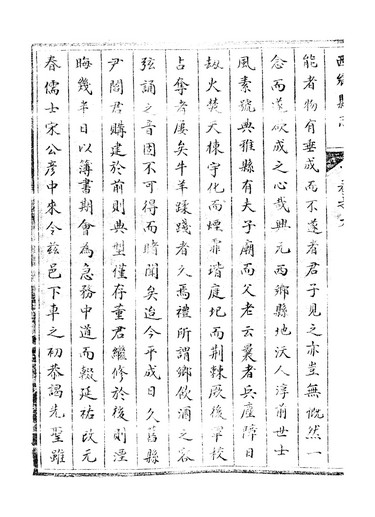 西鄉縣志
能者物有垂成而不遂者君子見之亦豈無慨然一
念而遂欲成之心哉興元西鄉縣地沃人淳前世士
風素號典雅縣有夫子廟而父老云曩者兵塵障日
劫火焚天棟宇化而煙霏堦庭圯而荆棘厥後軍校
占奪者屢矣牛羊蹂踐者久焉禮所謂鄉飲酒之容
弦誦之音固不可得而睹聞矣迨今平成日久舊縣
尹閻君購建於前則典型僅存董君繼修於後則湮
晦幾半日以簿書期會為急務中道而輟延祐改元
春儒士宋公彦中來令兹邑下車之初恭謁先聖雖